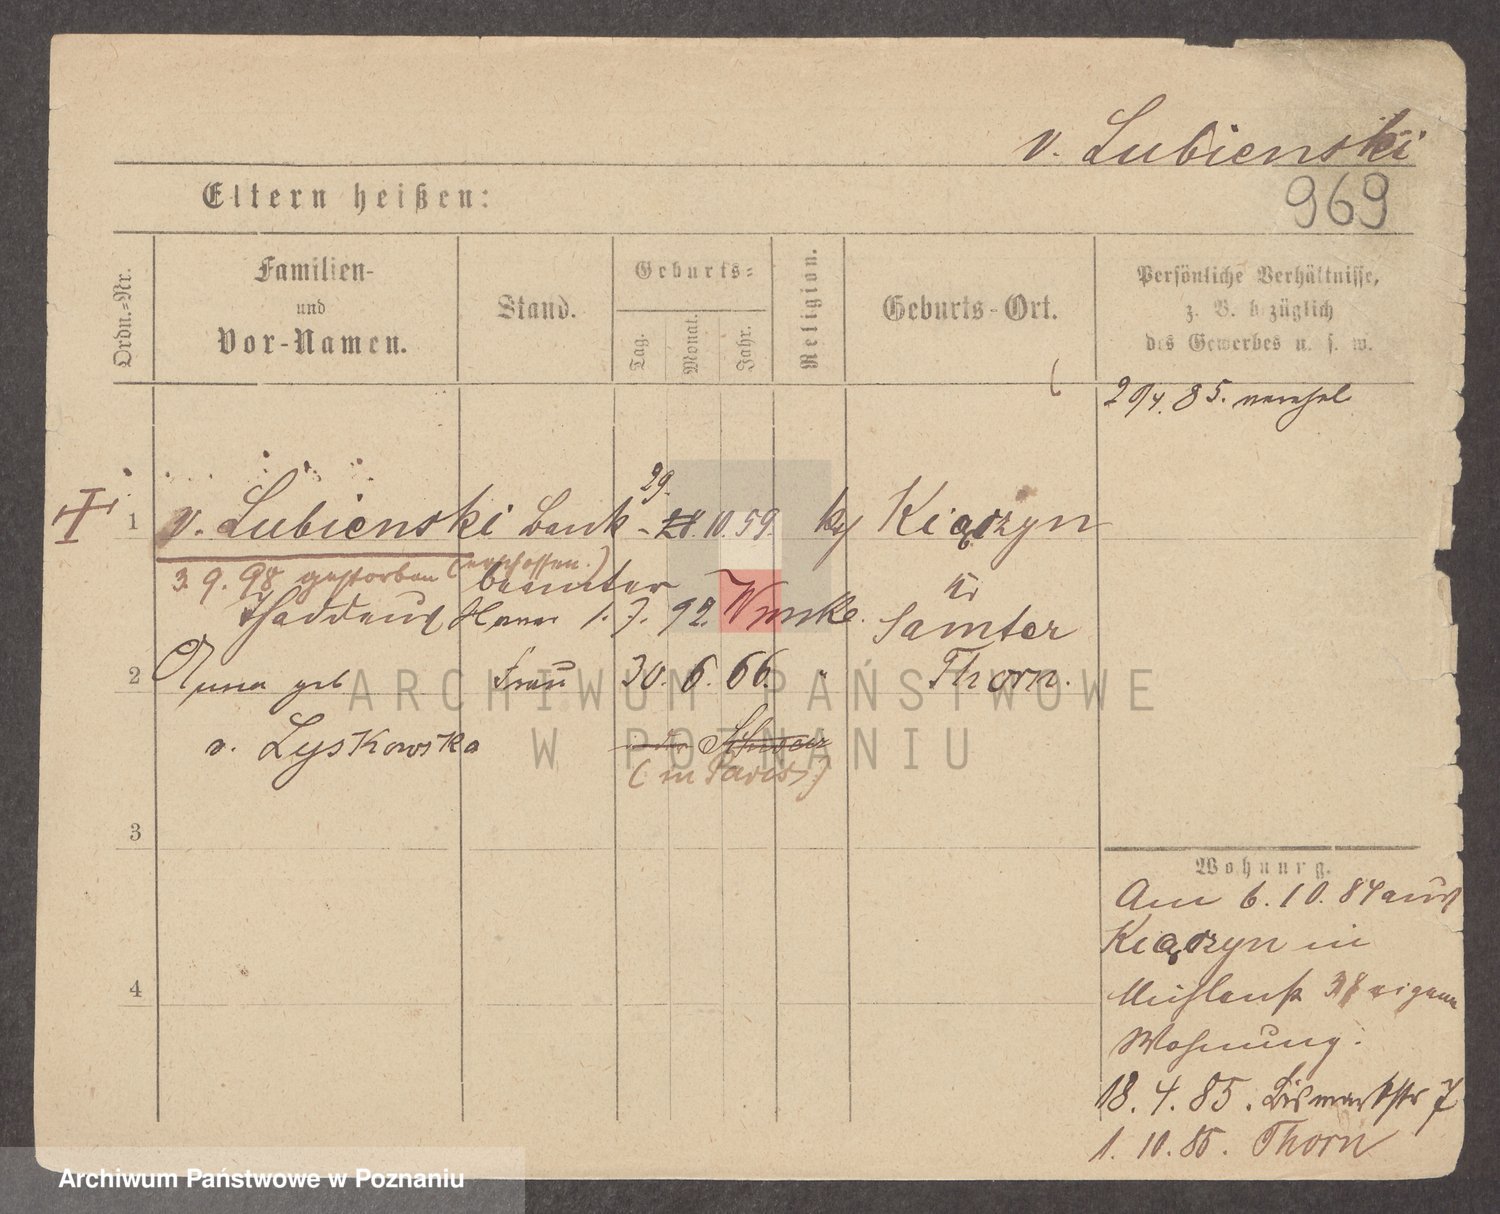 v. Lubienski
969
Eltern heißen:
Ordn.-Nr.
Familien-
und
Vor-Namen.
Stand.
Geburts-
Tag.
Monat.
Jahr.
Religion.
Geburts-Ort.
Persönliche Verhältnisse,
z. B. bezüglich
des Gewerbes u. s. w.
29/4. 85. verehel
29.
1 v. Lubienski Bank- 28. 10. 59. kg Kiączyn
3. 9. 98 gestorben (erschossen.) beamter Kr
Thaddeus 1. 7. 92. Samter
2 Anna geb Frau 30. 6. 66. " Thorn.
v. Lyskowska
(in Paris)
3
4
Wohnung.
Am 6. 10. 84 aus
Kiączyn in
Mühlenstr 38 eigene
Wohnung.
18. 4. 85. Bismarkstr 7
1. 10. 86. Thorn
ARCHIWUM PAŃSTWOWE
W POZNANIU
Archiwum Państwowe w Poznaniu